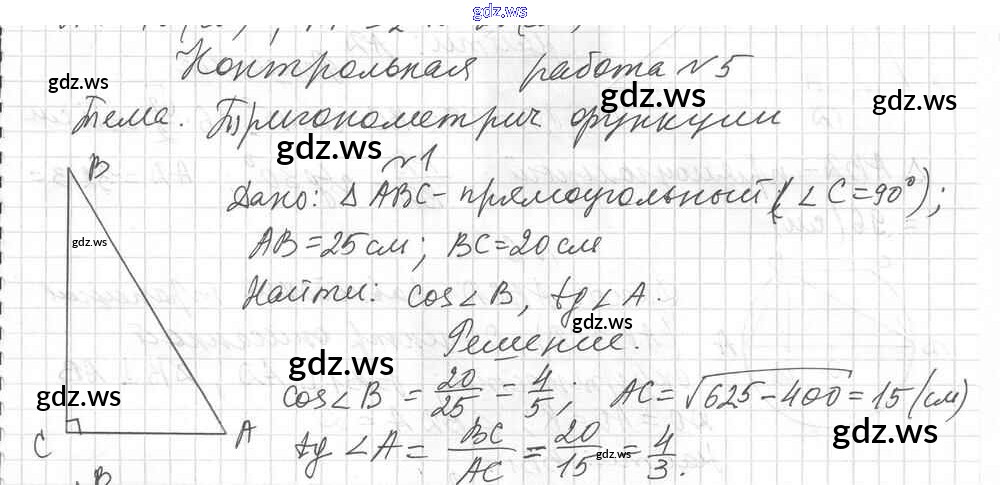 gdz.ws
Контрольная работа №5
gdz.ws
gdz.ws
gdz.ws
Тема. Тригонометрич функции
gdz.ws
№1
B
Дано: △ABC - прямоугольный (∠C=90°);
gdz.ws
AB=25см; BC=20см
Найти: cos∠B, tg∠A.
gdz.ws
Решение.
gdz.ws
cos∠B = 20/25 = 4/5; AC=√625-400=15(см)
gdz.ws
C A
tg∠A = BC/AC = 20/15 = 4/3.
gdz.ws
gdz.ws
B